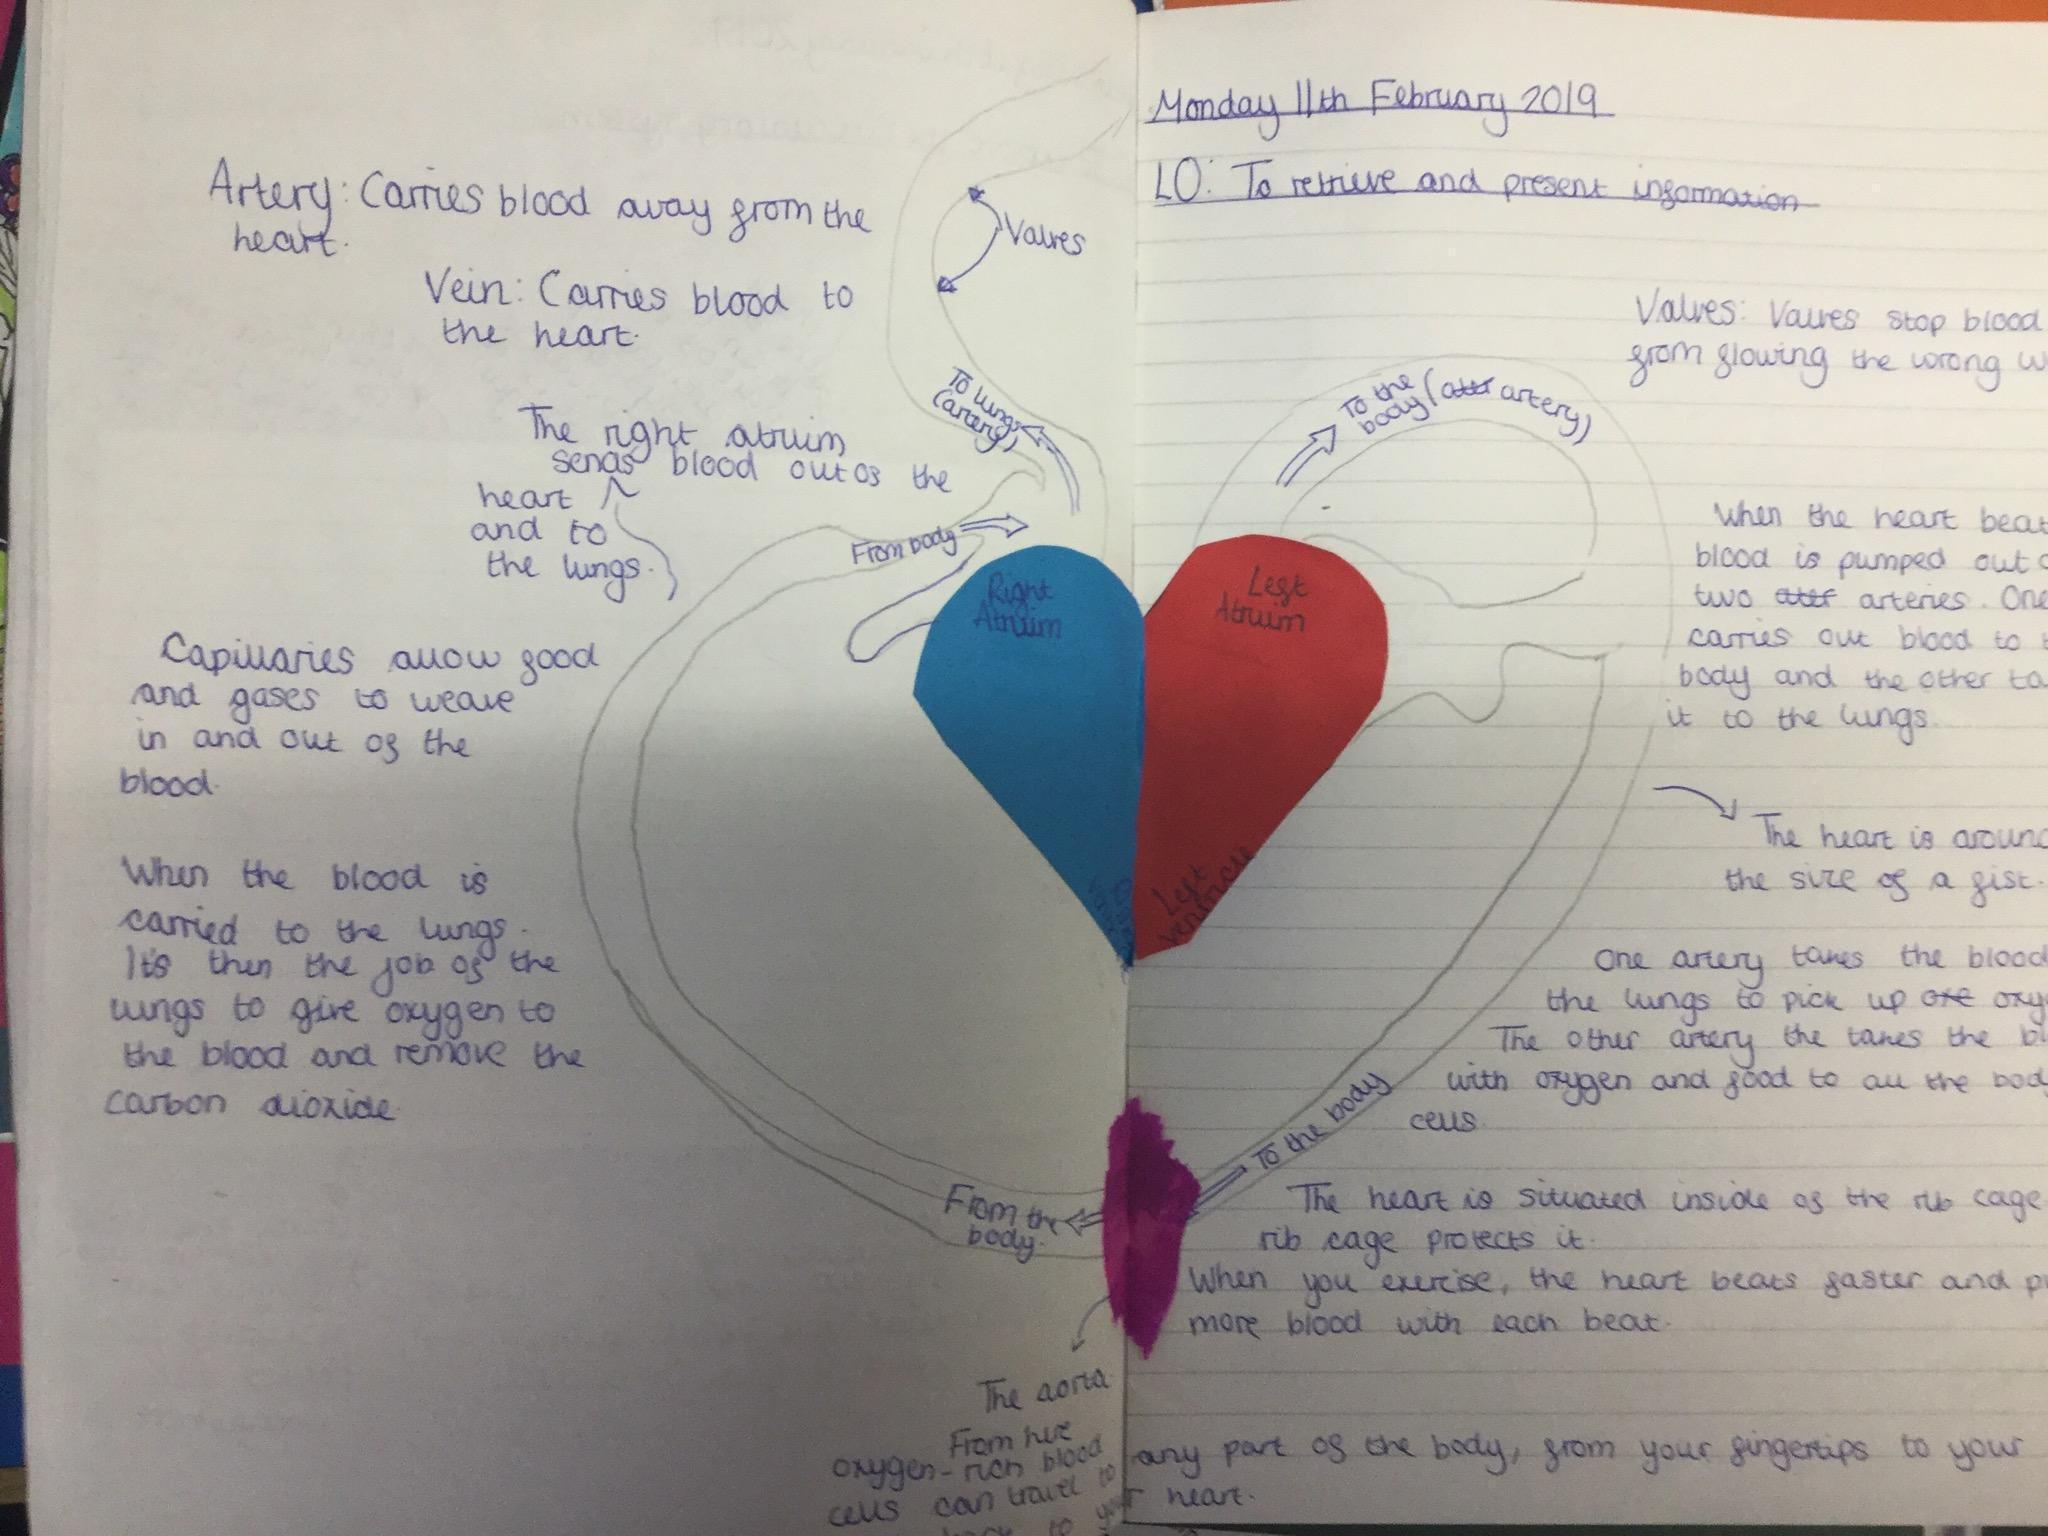 Artery: Carries blood away from the
heart.
Vein: Carries blood to
the heart.
The right atruim
sends blood out of the
heart
and to
the lungs.
Capillaries allow good
and gases to weave
in and out of the
blood.
When the blood is
carried to the lungs.
It's then the job of the
lungs to give oxygen to
the blood and remove the
carbon dioxide
Valves
To lungs
(artery)
From body
Right
Atruim
From the
body.
The aorta.
From
oxygen-rich blood
cells can travel to
Monday 11th February 2019
LO: To retrieve and present information
Valves: Valves stop blood
from flowing the wrong
To the
body (artery)
Left
Atruim
Left
ventricle
When the heart beat
blood is pumped out
two arteries. One
carries out blood to
body and the other
it to the lungs.
The heart is around
the size of a fist.
One artery takes the blood
the lungs to pick up
The other artery the takes the
with oxygen and food to all the
cells.
To the body
The heart is situated inside of the rib cage
rib cage protects it.
When you exercise, the heart beats faster and
more blood with each beat.
any part of the body, from your fingertips to your
heart.